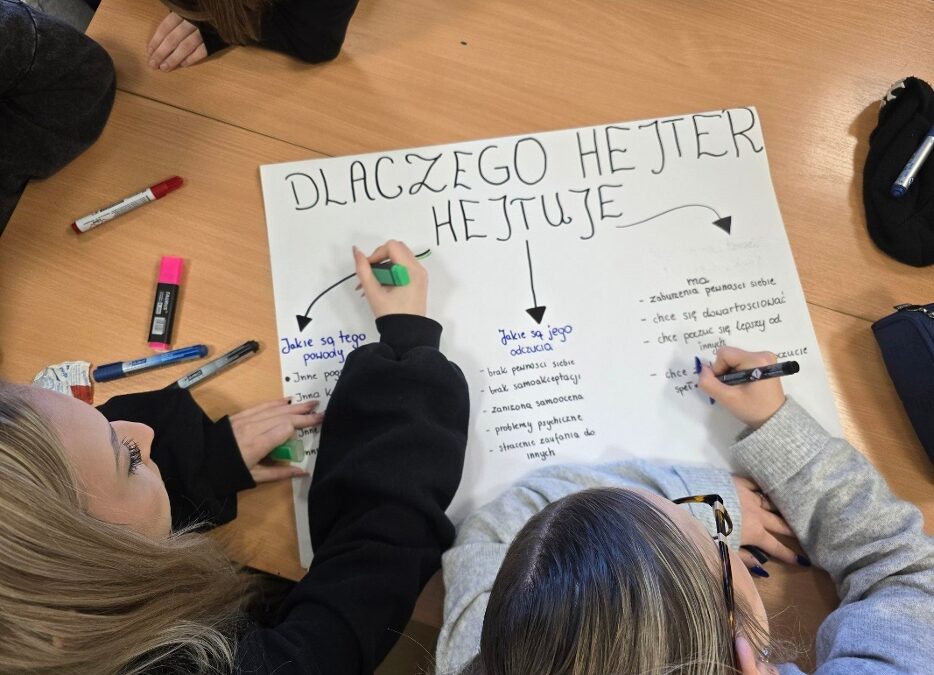 DLACZEGO HEJTER
HEJTUJE
Jakie są tego
powody
• Inne
Inna
Jakie są jego
odczucia
- brak pewności siebie
- brak samoakceptacji
- zaniżona samoocena
- problemy psychiczne
- stracenie zaufania do
innych
ma
- zaburzenia pewności siebie
- chce się dowartościować
- chce poczuć się lepszy od
innych
- chce